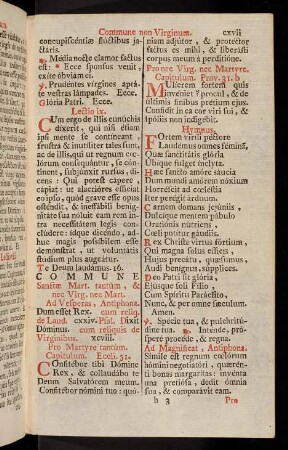 Commune non Virginum. cxvii
concupiscéntiæ flúctibus ja-
ctáris.
℟. Média nocte clamor factus
est: * Ecce sponsus venit,
exíte óbviam ei.
℣. Prudéntes vírgines aptá-
te vestras lámpades. Ecce.
Glória Patri. Ecce.
Lectio ix.
CUm ergo de illis eunúchis
díxerit, qui nisi étiam
ipsi mente se contíneant,
frustra & inutíliter tales sunt,
ne de illis, qui ut regnum cæ-
lórum consequántur, se có-
tinent, subjúnxit rursus, di-
cens: Qui potest cápere,
cápiat: ut alacrióres efficiat
eo ipso, quòd grave esse opus
osténdit, & ineffábili beni-
gnitáte suâ noluit eam rem in-
tra necessitátem legis con-
clúdere: idque dicendo, ad-
huc magis possíbilem esse
demónstrat, ut voluntátis
stúdium plus augeátur.
Te Deum laudamus. 16.
COMMUNE
Sanctæ Mart. tantùm, &
nec Virg. nec Mart.
Ad Vesperas, Antiphona.
Dum esset Rex. cum reliq.
de Laud. cxxiv. Psal. Dixit
Dóminus. cum reliquis de
Virginibus. xcviii.
Pro Martyre tantùm.
Capitulum. Eccli. 51.
COnfitébor tibi Dómine
Rex, & collaudábo te
Deum Salvatórem meum.
Confitébor nómini tuo: quó-
niam adjútor, & protéctor
factus es mihi, & liberásti
corpus meum à perditióne.
Pro nec Virg. nec Martyre.
Capitulum. Prov. 31. b
MUlíerem fortem quis
invéniet? procul, & de
últimis fínibus prétium ejus.
Confídit in ea cor viri sui, &
spóliis non indigébit.
Hymnus.
FOrtem viríli péctore
Laudémus omnes féminā,
Quæ sanctitátis glóriâ
Ubíque fulget ínclyta.
Hæc sancto amóre sáucia
Dum mundi amórem nóxium
Horréscit ad cœléstia
Iter perégit árduum.
Carnem domans jejúniis,
Dulcíque mentem pábulo
Oratiónis nútriens,
Cœli potítur gáudiis.
Rex Christe virtus fórtium,
Qui magna solus éfficis,
Hujus precátu, quǽsumus,
Audi benígnus, súpplices.
Deo Patri sit glória,
Ejúsque soli Fílio,
Cum Spíritu Paráclito,
Nunc, & per omne sǽculum.
Amen.
℣. Spécie tua, & pulchritú-
dine tua. ℟. Inténde, pró-
spere procéde, & regna.
Ad Magnificat, Antiphona.
Símile est regnum cœlórum
hómini negotiatóri, quærén-
ti bonas margarítas: invénta
una pretiósa, dedit ómnia
sua, & comparávit eam.
h 3 Pro